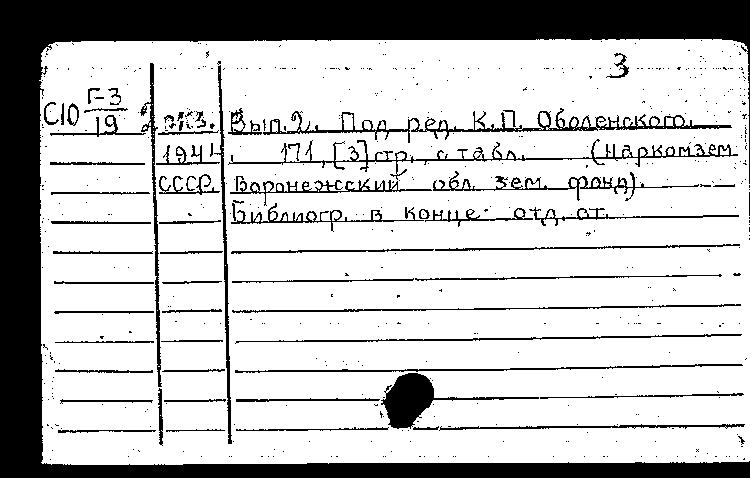 3
С10 Г-3/19 2 экз. Вып. 2. Под ред. К.П. Оболенского.
1941. 171, [3] стр. с табл. (Наркомзем
СССР. Воронежский обл. зем. фонд).
Библиогр. в конце отд. ст.